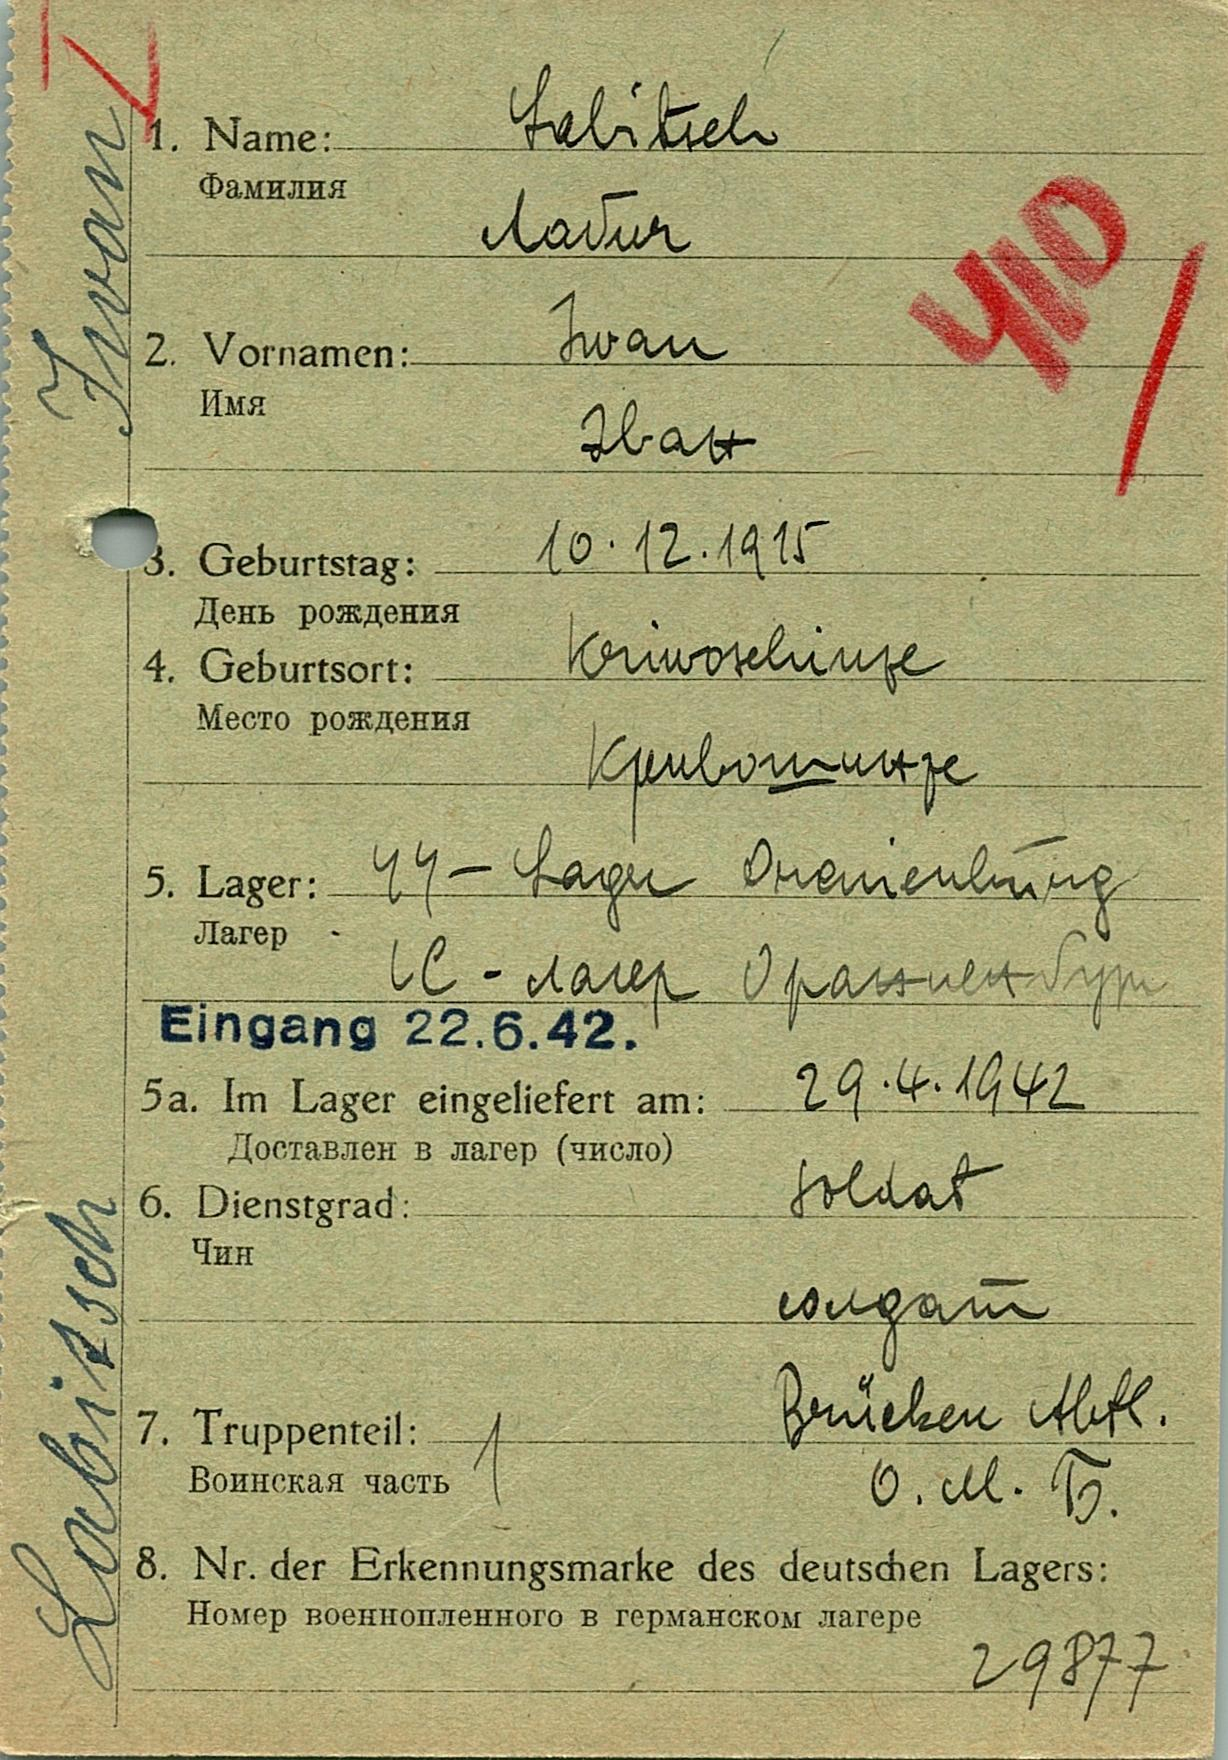 1. Name: Labitsch
Фамилия
Лабич
410
2. Vornamen: Iwan
Имя
Iван
3. Geburtstag: 10.12.1915
День рождения
4. Geburtsort: Kriwoschinze
Место рождения
Кривошинце
5. Lager: SS-Lager Oranienburg
Лагер
СС - лагер Ораниенбург
Eingang 22.6.42.
5a. Im Lager eingeliefert am: 29.4.1942
Доставлен в лагер (число)
6. Dienstgrad: Soldat
Чин
солдат
7. Truppenteil: Brücken Abtl.
Воинская часть
О. М. Б.
8. Nr. der Erkennungsmarke des deutschen Lagers:
Номер военнопленного в германском лагере
29877
Labitsch Iwan